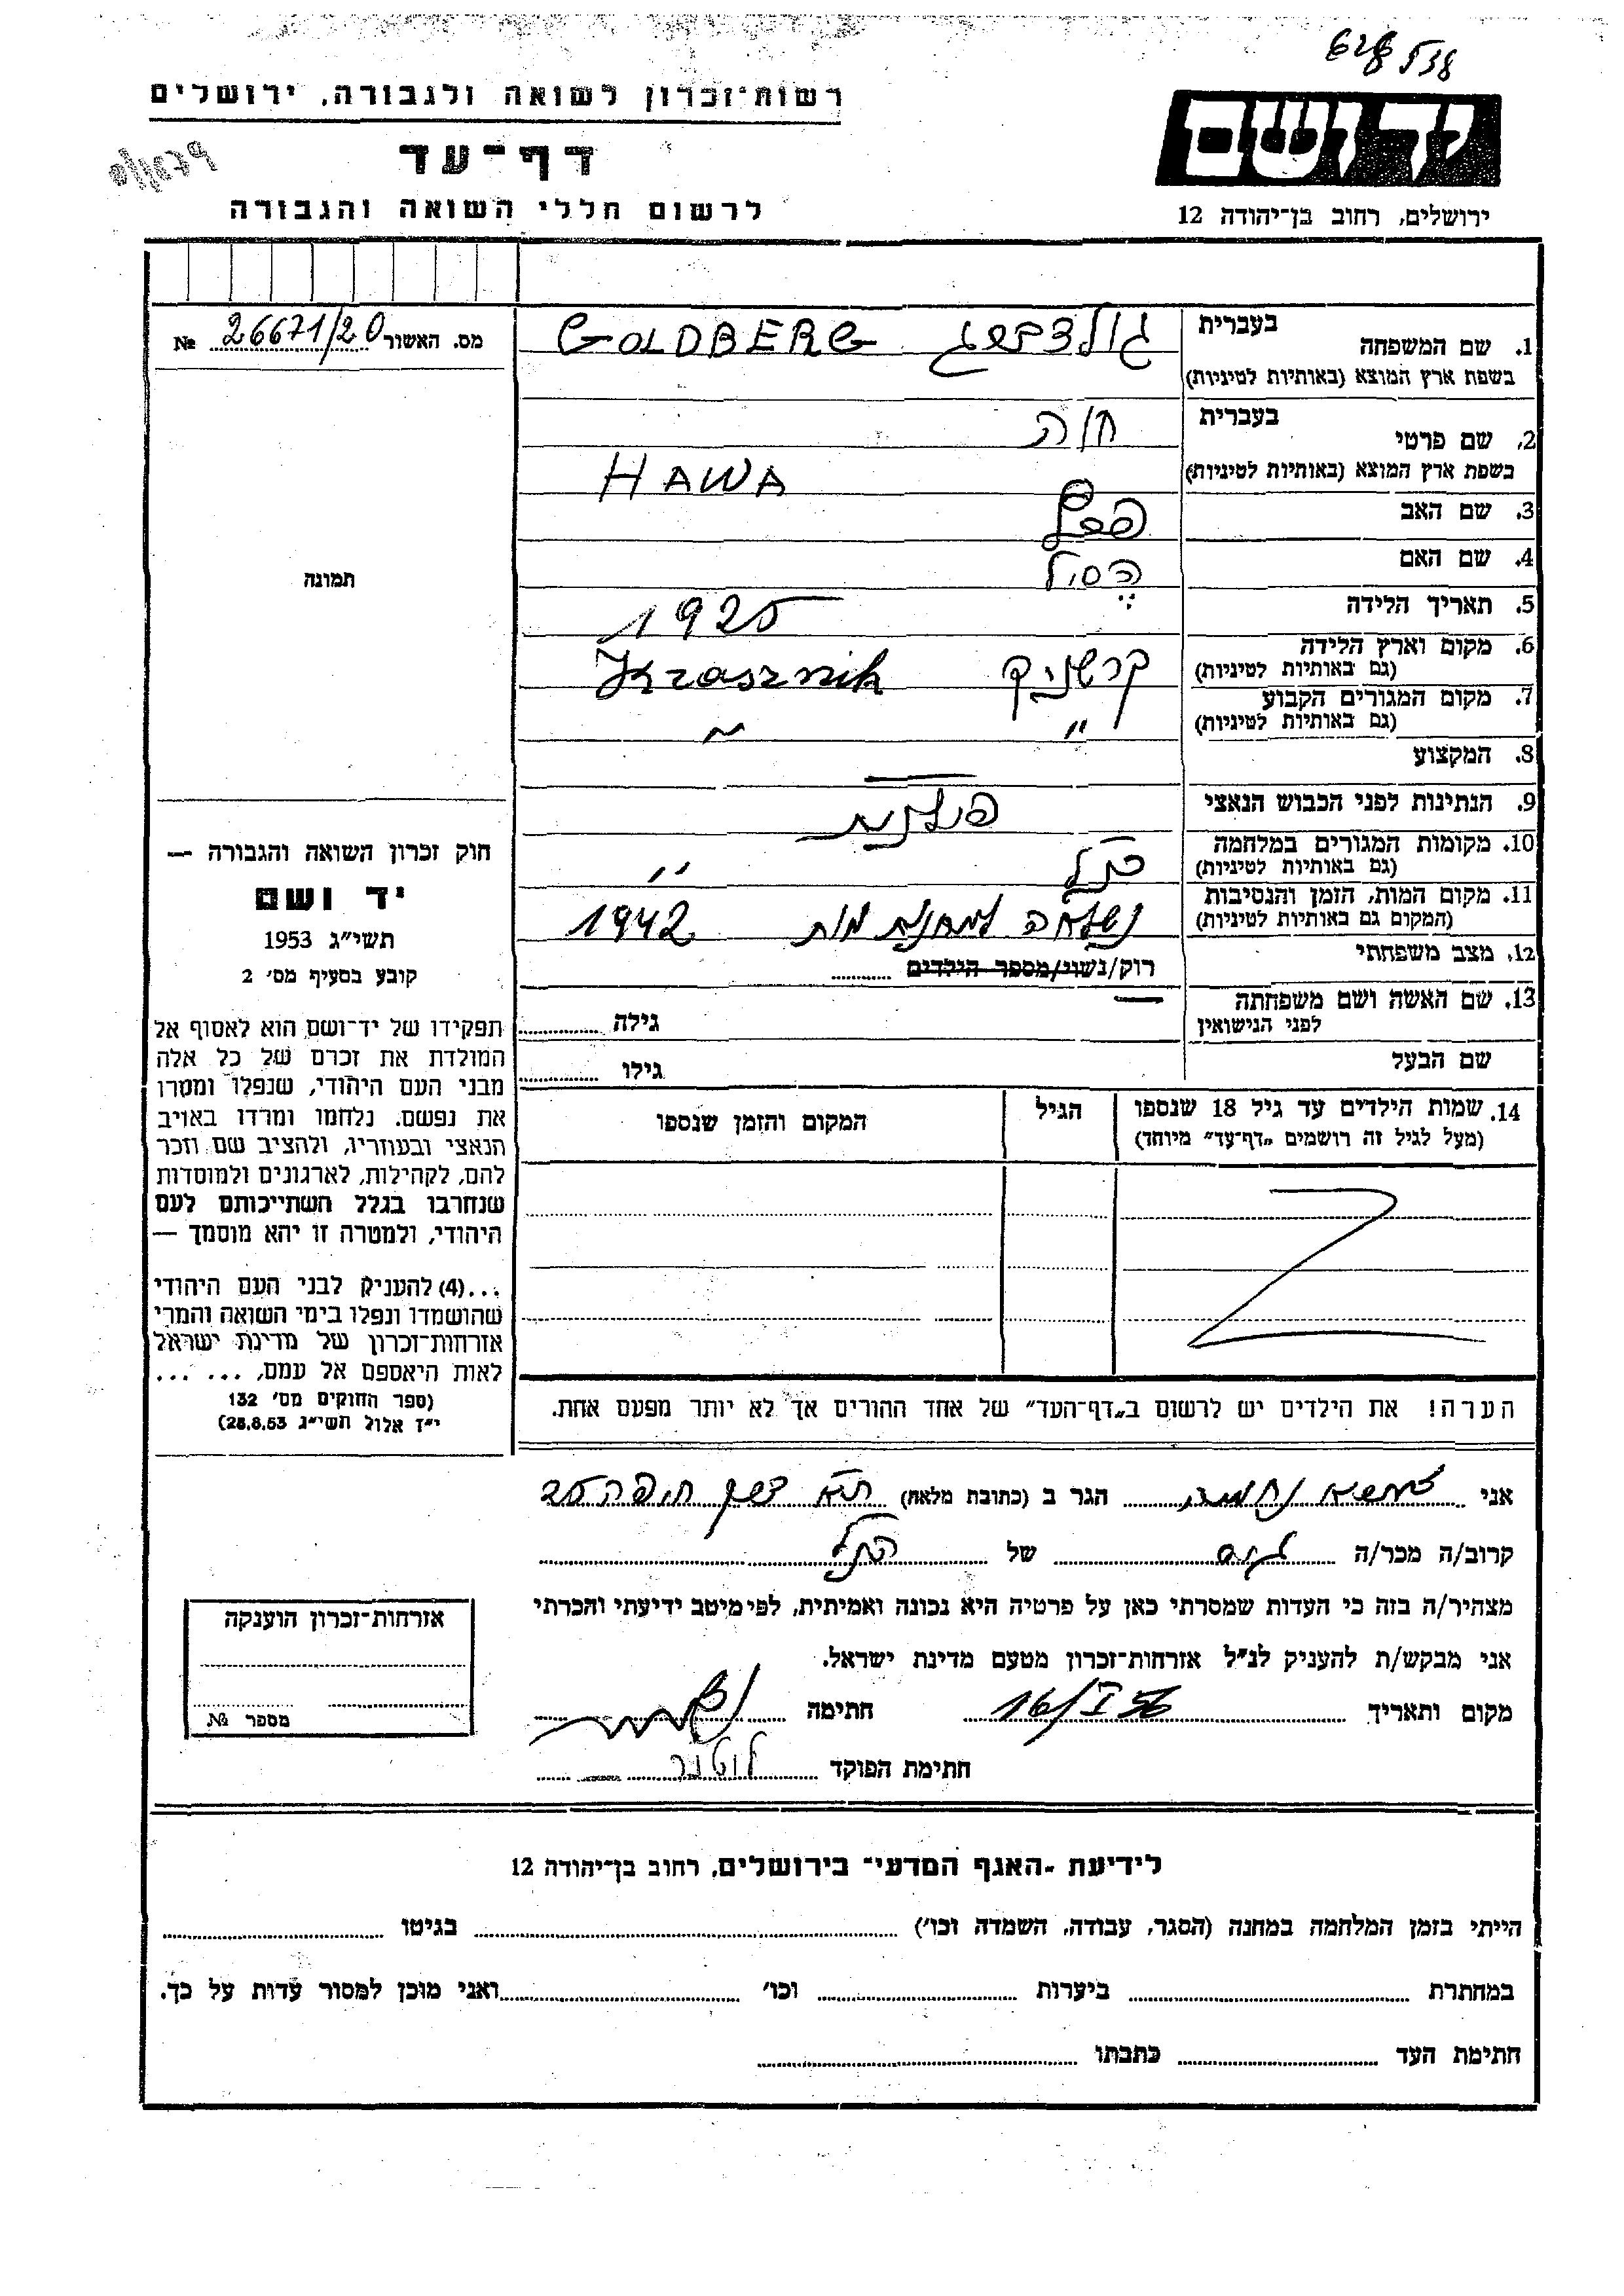 רשות־זכרון לשואה ולגבורה, ירושלים
דף־עד
לרשום חללי השואה והגבורה
יד ושם
ירושלים, רחוב בן־יהודה 12
מס. האשור 26671/20 №
תמונה
חוק זכרון השואה והגבורה —
יד ושם
תשי"ג 1953
קובע בסעיף מס׳ 2
תפקידו של יד־ושם הוא לאסוף אל
המולדת את זכרם של כל אלה
מבני העם היהודי, שנפלו ומסרו
את נפשם, נלחמו ומרדו באויב
הנאצי ובעוזריו, ולהציב שם וזכר
להם, לקהילות, לארגונים ולמוסדות
שנחרבו בגלל השתייכותם לעם
היהודי, ולמטרה זו יהא מוסמך —
...(4) להעניק לבני העם היהודי
שהושמדו ונפלו בימי השואה והמרי
אזרחות־זכרון של מדינת ישראל
לאות היאספם אל עמם, ... ...
(ספר החוקים מס׳ 132
י"ז אלול תשי"ג 28.8.53)
בעברית
1. שם המשפחה גולדברג GOLDBERG
בשפת ארץ המוצא (באותיות לטיניות)
בעברית
2. שם פרטי חוה
בשפת ארץ המוצא (באותיות לטיניות) HAWA
3. שם האב
4. שם האם
5. תאריך הלידה 1925
6. מקום וארץ הלידה קרשניק Krasznik
(גם באותיות לטיניות)
7. מקום המגורים הקבוע " "
(גם באותיות לטיניות)
8. המקצוע —
9. הנתינות לפני הכבוש הנאצי פולנית
10. מקומות המגורים במלחמה כנ"ל "
(גם באותיות לטיניות)
11. מקום המות, הזמן והנסיבות נשלחה למחנה מות 1942
(המקום גם באותיות לטיניות)
12. מצב משפחתי רוק/נשוי/מספר הילדים
13. שם האשה ושם משפחתה — גילה
לפני הנישואין
שם הבעל גילו
14. שמות הילדים עד גיל 18 שנספו הגיל המקום והזמן שנספו
(מעל לגיל זה רושמים "דף־עד" מיוחד)
הערה! את הילדים יש לרשום ב"דף־העד" של אחד ההורים אך לא יותר מפעם אחת.
אני נחמה הגר ב (כתובת מלאה) ת"א
קרוב/ה מכר/ה של הנ"ל
מצהיר/ה בזה כי העדות שמסרתי כאן על פרטיה היא נכונה ואמיתית, לפי מיטב ידיעתי והכרתי
אני מבקש/ת להעניק לנ"ל אזרחות־זכרון מטעם מדינת ישראל.
מקום ותאריך 16/I 56 חתימה
חתימת הפוקד
אזרחות־זכרון הוענקה
מספר №
לידיעת "האגף המדעי" בירושלים, רחוב בן־יהודה 12
הייתי בזמן המלחמה במחנה (הסגר, עבודה, השמדה וכו׳) בגיטו
במחתרת ביערות וכו׳ ואני מוכן למסור עדות על כך.
חתימת העד כתבתו